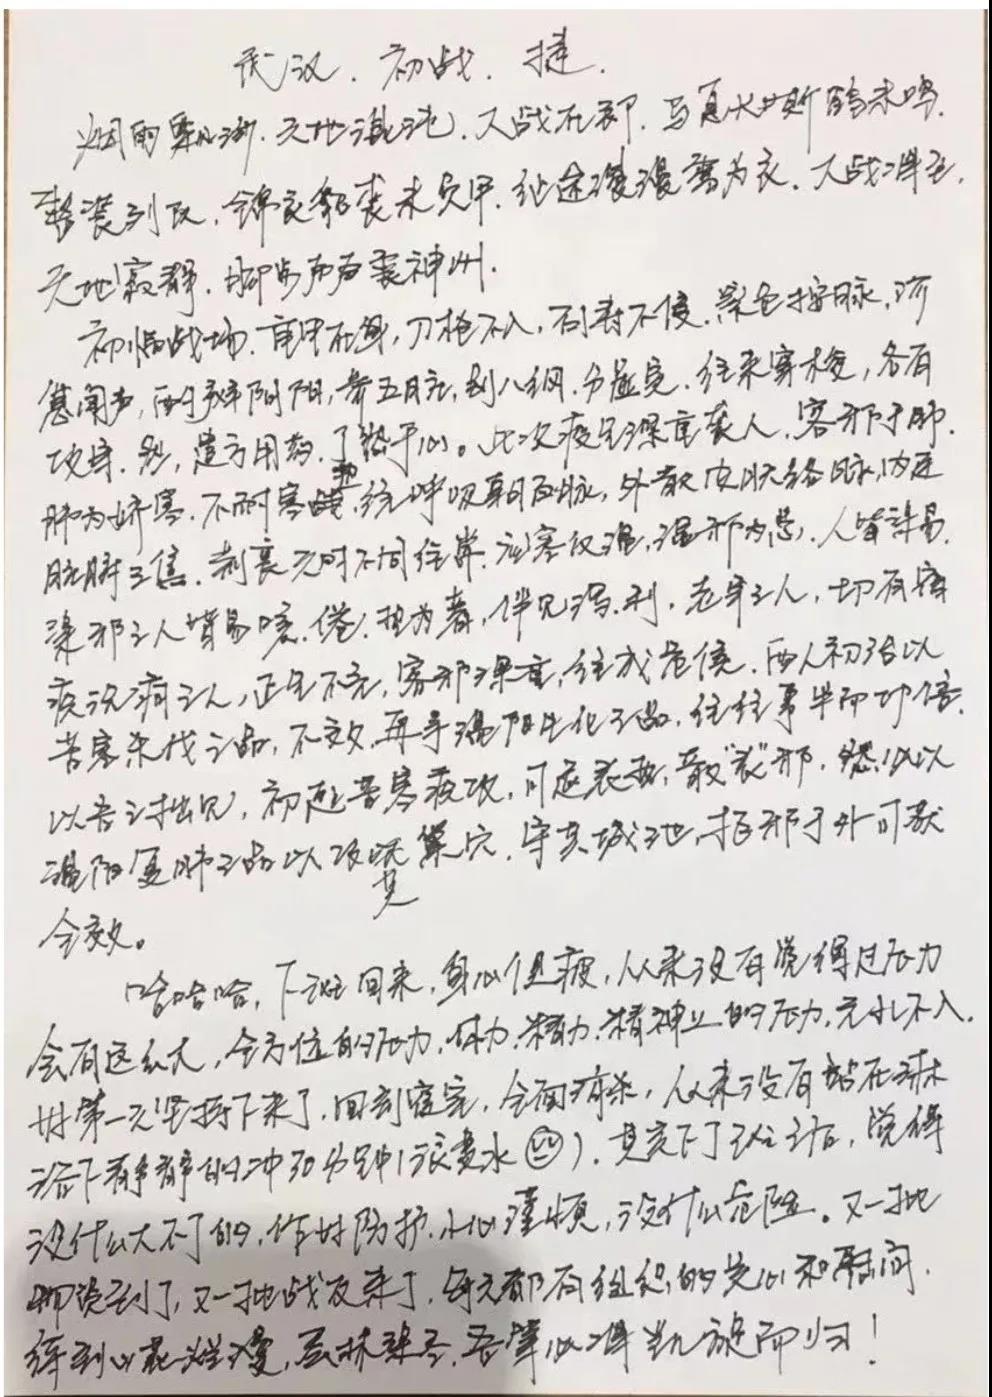 武汉.初战.捷.
烟雨飘渺.天地混沌.大战在即.
整装列队.锦衣貂裘未负甲.征途漫漫鸾为衣.大战
天地寂静.脚步声声震神州.
初临战场.重甲在身,刀枪不入,百毒不侵.紧色按脉,
息闻声,再辨阴阳,参五月六,别八纲.分虚实.往来寒梭,各有
攻守.别,遣方用药.了然于心。此次疫毒深重袭人.客邪于肺.
肺为娇脏.不耐寒热.统呼吸朝百脉,外散皮肤络脉,内连
脏腑三焦.天时不同往常.湿邪为患.人皆
染邪之人皆易咳.倦.热为著,伴见泻.利.老年之人,切有宿
疾沉疴之人,正气不充,客邪深重,往成危候.初治以
苦寒杀伐之品,不效.再予温阳生化之品.往往事半而功倍.
以吾之拙见,初起苦寒疾攻,可逐表热,散“表”邪.然后以
温阳复肺之品以攻其巢穴.守其城池,拒邪于外可获
全效。
哈哈哈,下班回来,身心俱疲,从来没有觉得过压力
会有这么大,全方位的压力,体力.精力.精神上的压力,无孔不入.
好第一次坚持下来了.回到寝室,全面消杀,从来没有站在淋
浴下静静的冲30分钟(浪费水).其实下了班之后,觉得
没什么大不了的,作好防护.小心谨慎,没什么危险。又一批
物资到了,又一批战友来了.每天都有组织的关心和慰问.
待到山花烂漫,吾辈必得凯旋而归!